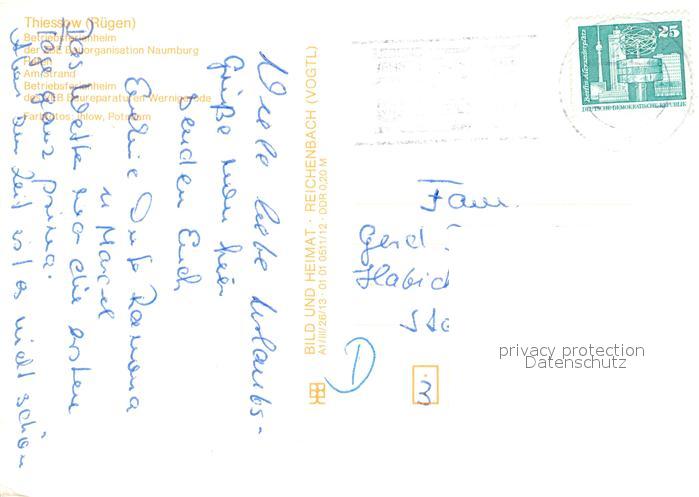 Thiessow (Rügen)
Betriebsferienheim
der VEB Bauorganisation Naumburg
Am Strand
Betriebsferienheim
des VEB Baureparaturen Wernigerode
Farbfotos: Ihlow, Potsdam
Viele liebe Urlaubs-
grüße von hier
senden Euch
Ute Ramona
u. Marcel
Das Wetter war die ersten
Tage ganz prima.
Aber zur Zeit ist es nicht schön
BILD UND HEIMAT · REICHENBACH (VOGTL)
A1/III/26/13 · 01 01 0511/12 · DDR 0,20 M
25
Berlin, Alexanderplatz
DEUTSCHE DEMOKRATISCHE REPUBLIK
Fam.
Gerd
Habich
D
3
privacy protection
Datenschutz